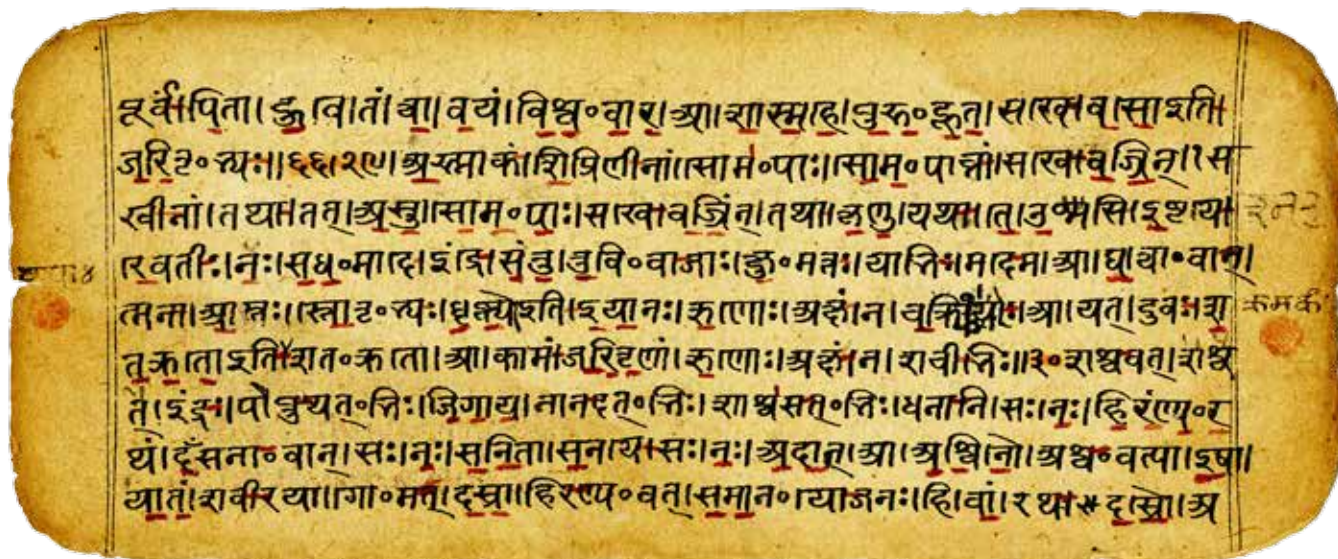 पूर्वं।पिता।हुवे।तं।त्वा।वयं।विश्व॰वार।आ।शास्महे।पुरु॰हूत।सखे।वसोऽति
जरितृ॰भ्यः॥६६।२९।अस्माकं।शिप्रिणीनां।सोम॰पाः।सोम॰पाव्नां।सखे।वज्रिन्।स
खीनां।तथा।तत्।अस्तु।सोम॰पाः।सखे।वज्रिन्।तथा।कृणु।यथा।ते।उश्मसि।इष्टये।
रेवतीः।नः।सध॰मादे।इंद्रे।संतु।तुवि॰वाजाः।क्षु॰मन्तः।याभिः।मदेम।आ।घ।त्वा॰वान्।
त्मना।आप्तः।स्तोतृ॰भ्यः।धृष्णोऽति।इयानः।ऋणोः।अक्षं।न।चक्र्योः।आ।यत्।दुवः।श
तक्रतोऽतिशत॰क्रतो।आ।कामं।जरितॄणां।ऋणोः।अक्षं।न।शचीभिः॥३॰शश्वत्।
इंद्रः।पोप्रुथत्॰भिः।जिगाय।नानदत्॰भिः।शाश्वसत्॰भिः।धनानि।सः।नः।हिरण्य॰र
थं।दँसना॰वान्।सः।नः।सनिता।सनये।सः।नः।अदात्।आ।अश्विनौ।अश्व॰वत्या।इषा।
यातं।शवीरया।गो॰मत्।दस्रा।हिरण्य॰वत्।समान॰योजनः।हि।वां।रथः।दस्रौ।अ